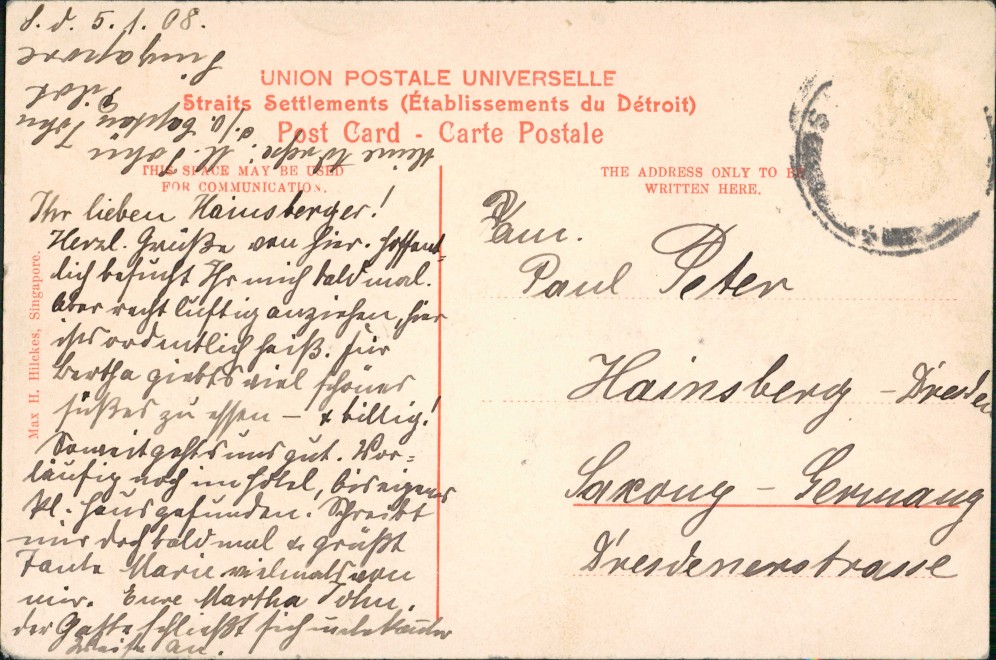 S. d. 5. 1. 08.
Singapore
Pilot
a/d. Captain John
Meine Adresse: M. John
UNION POSTALE UNIVERSELLE
Straits Settlements (Établissements du Détroit)
Post Card - Carte Postale
THIS SPACE MAY BE USED
FOR COMMUNICATION.
THE ADDRESS ONLY TO BE
WRITTEN HERE.
Max H. Hilckes, Singapore.
Ihr lieben Hainsberger!
Herzl. Grüße von hier. Hoffent-
lich besucht Ihr mich bald mal.
Aber recht luftig anziehen, hier
ists ordentlich heiß. Für
Bertha giebts viel schönes
süßes zu essen – & billig!
Soweit gehts uns gut. Vor-
läufig noch im Hotel, bis eigenes
kl. Haus gefunden. Schreibt
mir doch bald mal & grüßt
Tante Marie vielmals von
mir. Eure Martha John.
der Gatte schließt sich unbekannter
Weise an.
Fam.
Paul Peter
Hainsberg – Dresden
Saxony – Germany
Dresdenerstrasse